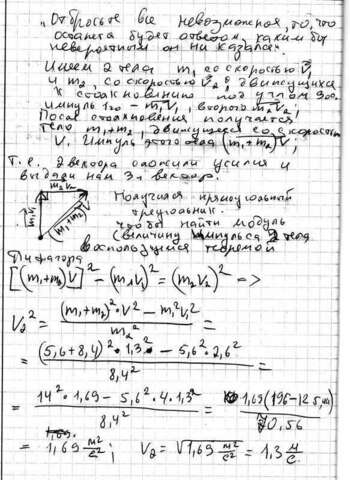 „Отбросьте все невозможное, то, что
останется будет ответом, каким бы
невероятным он ни казался".
Имеем 2 тела m₁ со скоростью V₁
и m₂, со скоростью V₂, движущихся
к столкновению под углом 90°
импульс 1го – m₁V₁, второго m₂V₂;
После столкновения получается
тело m₁+m₂, движущееся со скоростью
V. Импульс этого тела (m₁+m₂)V;
Т.е. 2 вектора сложили усилия и
выдали нам 3й вектор.
m₂V₂
m₁V₁
(m₁+m₂)V
Получился прямоугольный
треугольник.
Чтобы найти модуль
(величину импульса 2 тела
воспользуемся теоремой
Пифагора
[(m₁+m₂)V]² – (m₁V₁)² = (m₂V₂)² =>
V₂² = ((m₁+m₂)²·V² – m₁²V₁²)/m₂² =
= ((5,6+8,4)²·1,3² – 5,6²·2,6²)/8,4² =
= (14²·1,69 – 5,6²·4·1,3²)/8,4² = 1,69(196–125,44)/70,56
= 1,69 м²/с²; V₂ = √1,69 м²/с² = 1,3 м/с